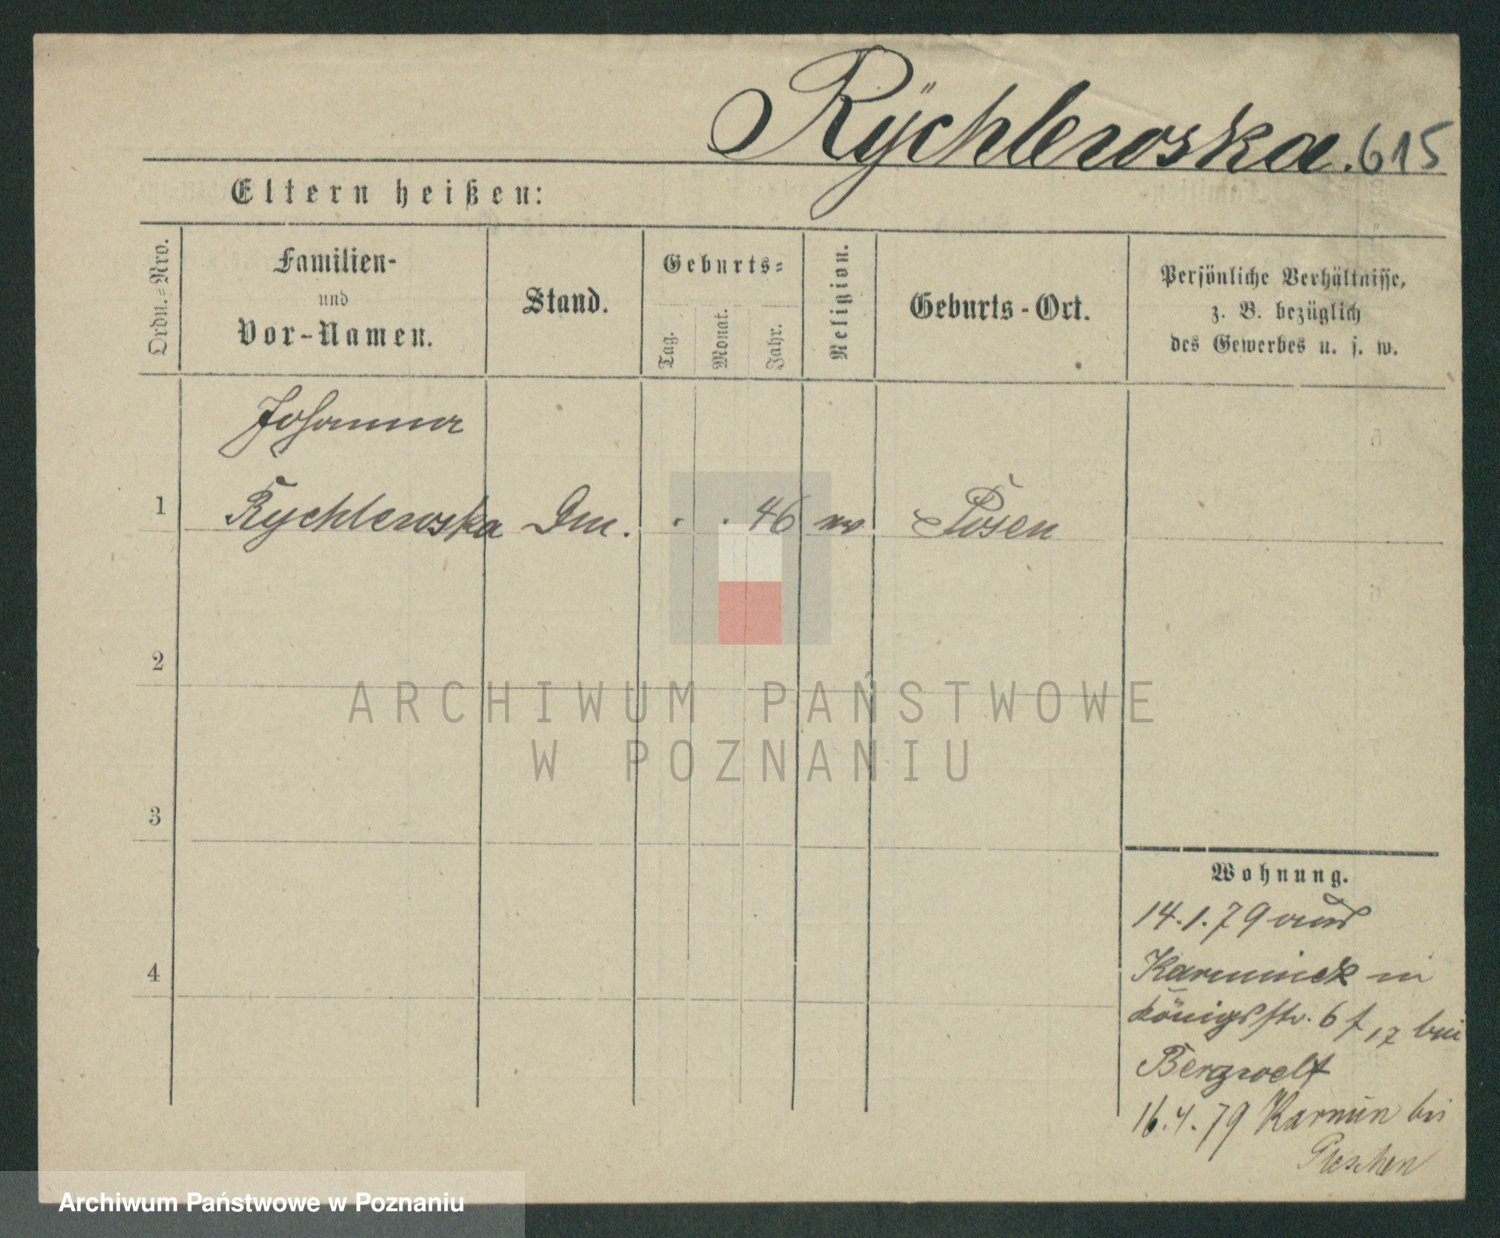 Rÿchlewska. 615
Eltern heißen:
Ordn.=Nro.
Familien-
und
Vor-Namen.
Stand.
Geburts=
Tag.
Monat.
Jahr.
Religion.
Geburts-Ort.
Persönliche Verhältnisse,
z. B. bezüglich
des Gewerbes u. s. w.
Johanna
1 Rychlewska . . 46 Posen
2
3
4
Wohnung.
14.1.79 aus
Karminek in
Königsstr. 6 17 bei
Bergwelt
16.4.79 Karmin bei
Pleschen
ARCHIWUM PAŃSTWOWE
W POZNANIU
Archiwum Państwowe w Poznaniu